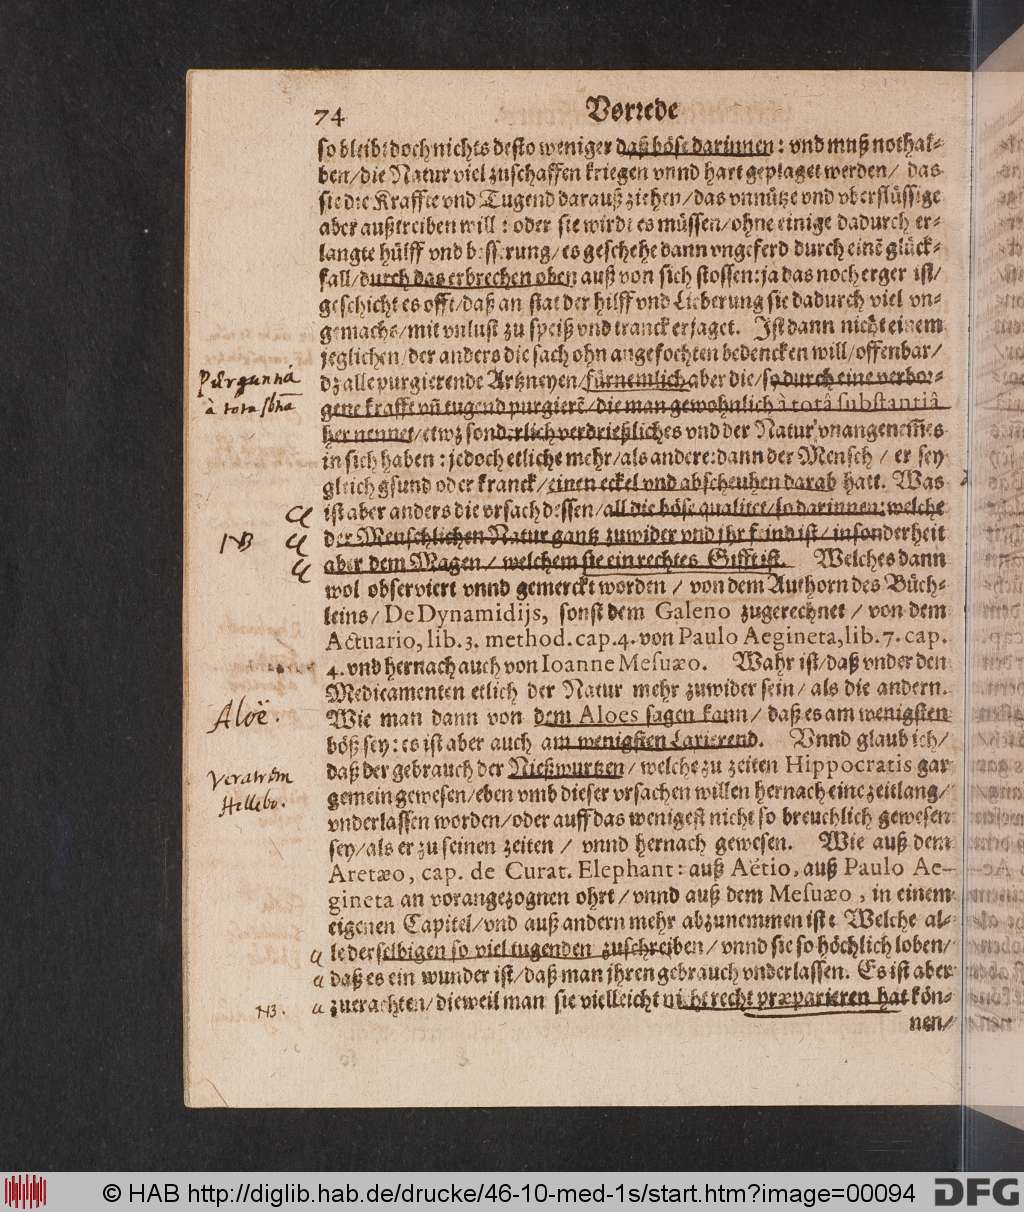 74 Vorrede
so bleibt doch nichts desto weniger daß böse darinnen: vnd muß nothal-
ben/die Natur viel zuschaffen kriegen vnnd hart geplaget werden/ das
sie die Kraffte vnd Tugend darauß ziehen/das vnnütze vnd vberflüssige
aber außtreiben will: oder sie wirdt es müssen/ohne einige dadurch er-
langte hülff vnd besserung/es geschehe dann vngeferd durch einẽ glück-
fall/durch das erbrechen oben auß von sich stossen: ja das noch erger ist/
geschicht es offt/daß an stat der hilff vnd Lieberung sie dadurch viel vn-
gemachs/mit vnlust zu speiß vnd tranck erjaget. Jst dann nicht einem
jeglichen/der anders die sach ohn angefochten bedencken will/offenbar/
dz alle purgierende Artzneyen/fürnemlich aber die/so durch eine verbor-
gene krafft vñ tugend purgierẽ/die man gewohnlich à totâ substantiâ
her nennet/etwz sonderlich verdrießliches vnd der Natur vnangenem̃es
in sich haben: jedoch etliche mehr/als andere: dann der Mensch / er sey
gleich gsund oder kranck/einen eckel vnd abscheuhen darab hatt. Was
ist aber anders die vrsach dessen/all die böse qualitet/so darinnen: welche
NB der Menschlichen Natur gantz zuwider vnd jhr feind ist/insonderheit
aber dem Magen / welchem sie ein rechtes Gifft ist. Welches dann
wol observiert vnnd gemerckt worden / von dem Authorn des Büch-
leins/ De Dynamidijs, sonst dem Galeno zugerechnet / von dem
Actuario, lib. 3. method. cap. 4. von Paulo Aegineta, lib. 7. cap.
4. vnd hernach auch von Ioanne Mesuæo. Wahr ist/daß vnder den
Medicamenten etlich der Natur mehr zuwider sein/ als die andern.
Aloë. Wie man dann von dem Aloes sagen kann/ daß es am wenigsten
böß sey: es ist aber auch am wenigsten Laxierend. Vnnd glaub ich/
daß der gebrauch der Nießwurtzen/ welche zu zeiten Hippocratis gar
Hellebo. gemein gewesen/eben vmb dieser vrsachen willen hernach eine zeitlang/
vnderlassen worden/oder auff das wenigest nicht so breuchlich gewesen
sey/als er zu seinen zeiten / vnnd hernach gewesen. Wie auß dem
Aretæo, cap. de Curat. Elephant: auß Aëtio, auß Paulo Ae-
gineta an vorangezognen ohrt/vnnd auß dem Mesuæo, in einem
eigenen Capitel/vnd auß andern mehr abzunemmen ist: Welche al-
le derselbigen so viel tugenden zuschreiben/ vnnd sie so höchlich loben/
daß es ein wunder ist/daß man jhren gebrauch vnderlassen. Es ist aber
NB. zuerachten/dieweil man sie vielleicht nicht recht præparieren hat kön-
nen/
© HAB http://diglib.hab.de/drucke/46-10-med-1s/start.htm?image=00094 DFG